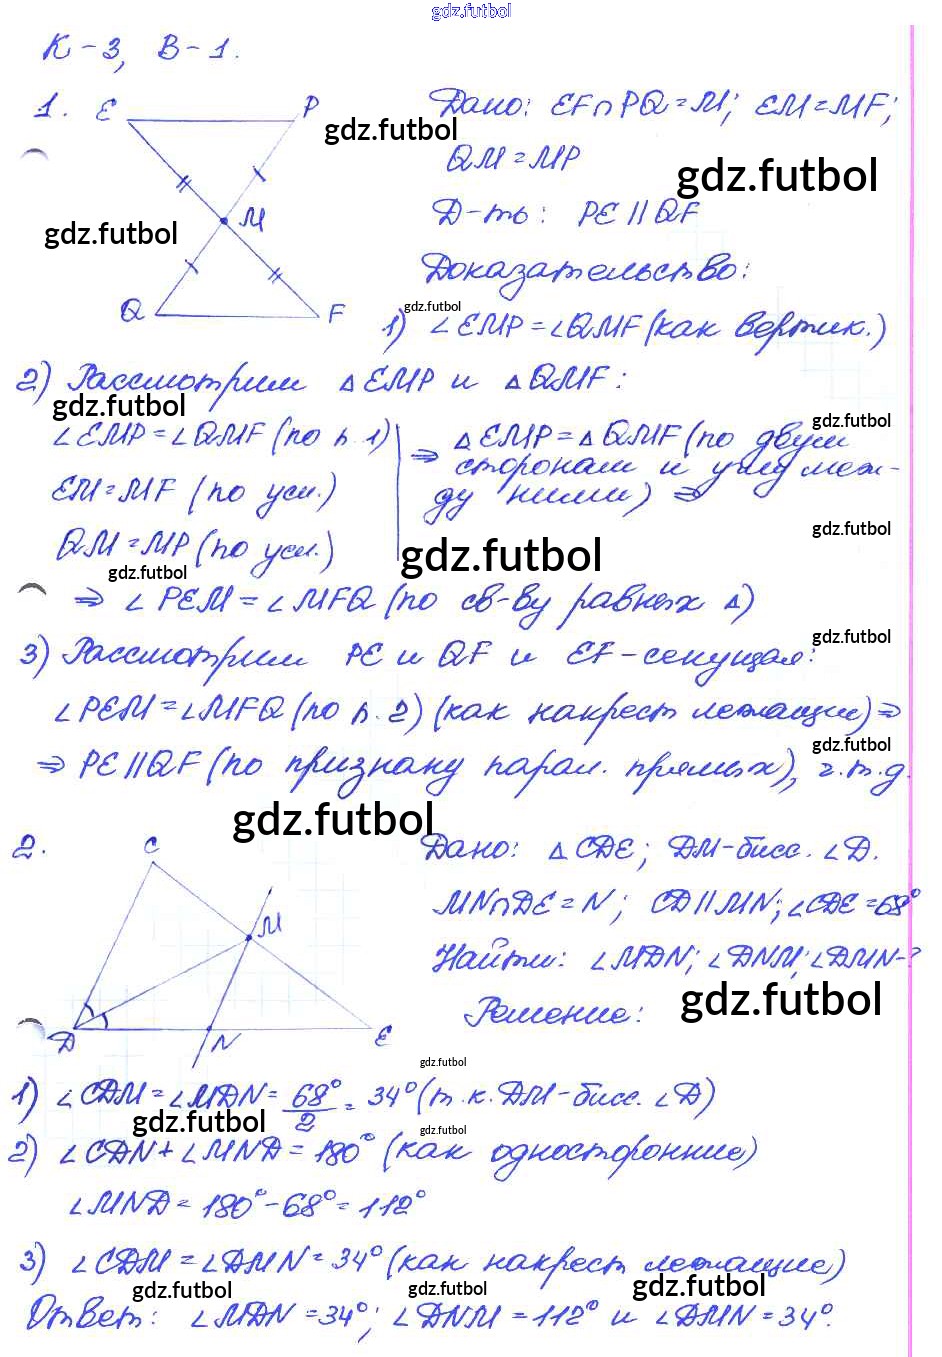 gdz.futbol
К-3, В-1.
1. E P Дано: EF∩PQ=M; EM=MF;
gdz.futbol
QM=MP
gdz.futbol
M
gdz.futbol
Д-ть: PE || QF
Доказательство:
Q F
gdz.futbol
1) ∠EMP=∠QMF (как вертик.)
2) Рассмотрим △EMP и △QMF:
gdz.futbol
gdz.futbol
∠EMP=∠QMF (по п.1) ⇒ △EMP=△QMF (по двум
сторонам и углу меж-
EM=MF (по усл.) ду ними) ⇒
gdz.futbol
QM=MP (по усл.)
gdz.futbol
gdz.futbol
⇒ ∠PEM=∠MFQ (по св-ву равных △)
gdz.futbol
3) Рассмотрим PE и QF и EF-секущая:
∠PEM=∠MFQ (по п.2) (как накрест лежащие) ⇒
gdz.futbol
⇒ PE||QF (по признаку парал. прямых), ч.т.д.
gdz.futbol
2. C Дано: △CDE; DM-бисс. ∠D.
MN∩DE=N; CD||MN; ∠CDE=68°
M
Найти: ∠MDN; ∠DNM; ∠DMN-?
gdz.futbol
Решение:
D N E
gdz.futbol
1) ∠CDM=∠MDN=68°/2=34° (т.к. DM-бисс. ∠D)
gdz.futbol
gdz.futbol
2) ∠CDN+∠MND=180° (как односторонние)
∠MND=180°-68°=112°
3) ∠CDM=∠DMN=34° (как накрест лежащие)
gdz.futbol
gdz.futbol
gdz.futbol
Ответ: ∠MDN=34°; ∠DNM=112° и ∠DMN=34°.